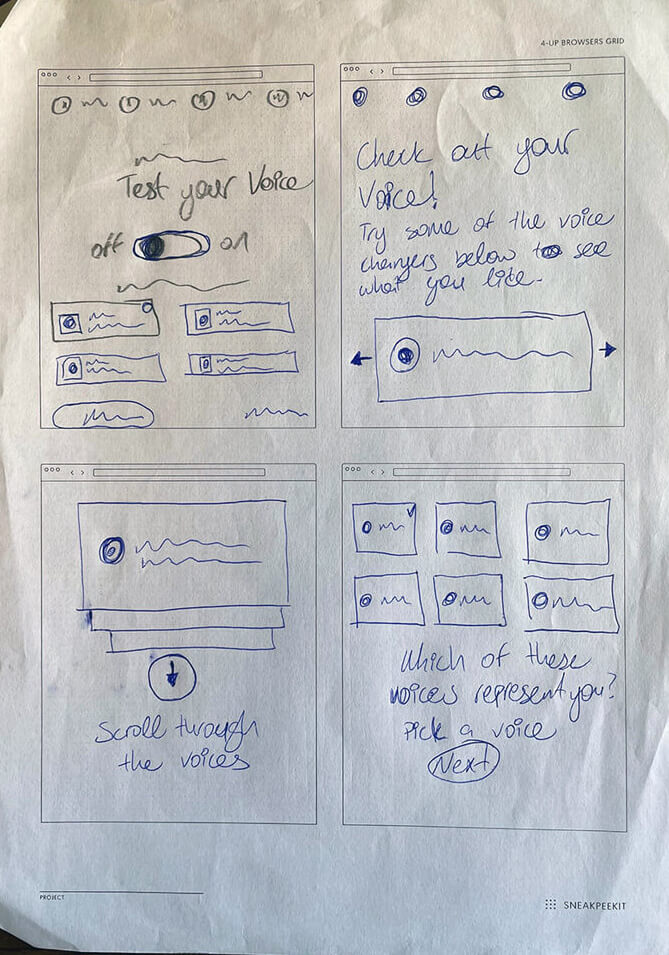 4-UP BROWSERS GRID
Test your Voice
off on
Check out your
Voice!
Try some of the voice
changers below to see
what you like.
Scroll through
the voices
Which of these
voices represent you?
Pick a voice
Next
PROJECT
SNEAKPEEKIT